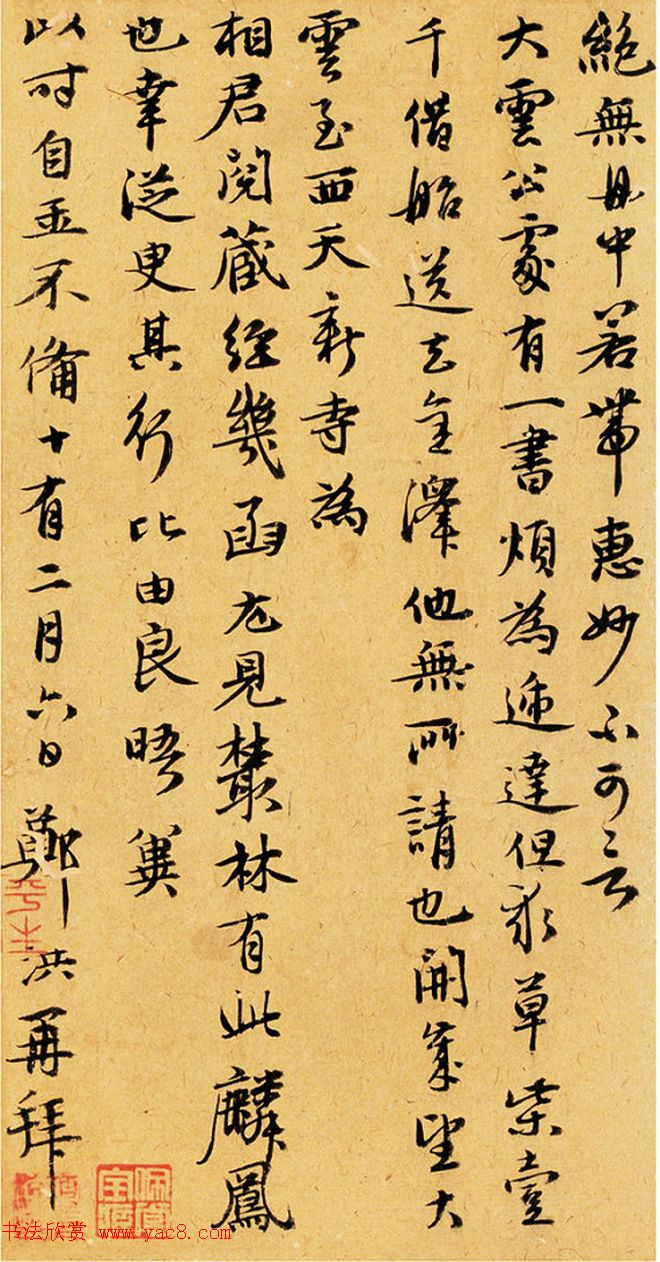 絕無且中若帶惠妙不可言
大雲公處有一書煩為遞達但求草柴壹
千借船送去金澤他無所請也開歲望大
雲至西天新寺為
相君閱藏經幾函尤見叢林有此麟鳳
也幸從臾其行比由良晤冀
以時自玉不備十有二月六日鄭洪再拜
书法欣赏 www.yac8.com